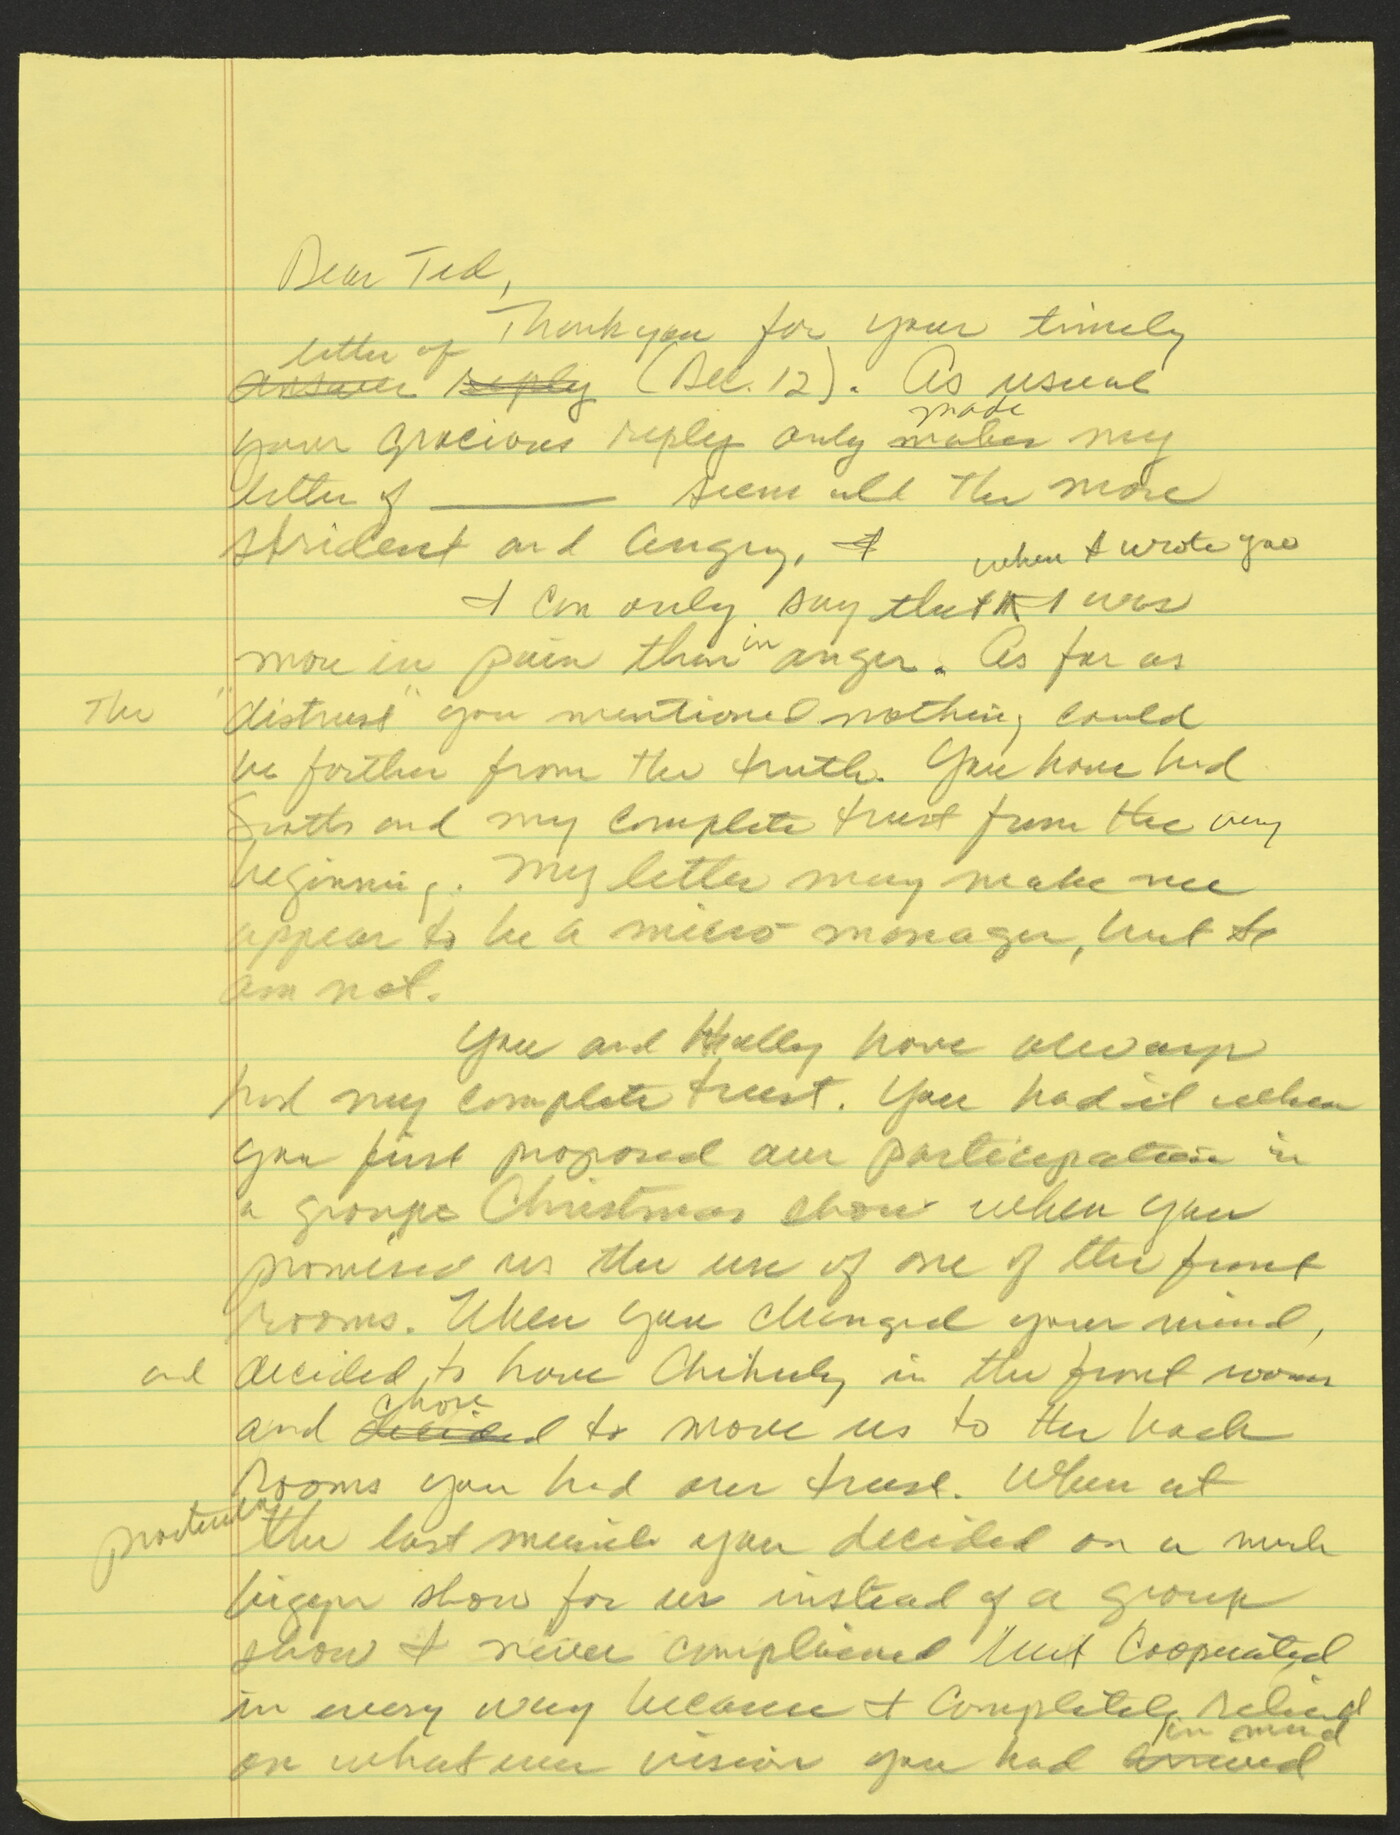 Dear Ted,
Thank you for your timely
letter of
answer reply (Dec. 12). As usual
made
your gracious reply only makes my
letter of ______ seem all the more
strident and angry, I
when I wrote you
I can only say that I was
more in pain than in anger. As far as
The "distrust" you mentioned nothing could
be farther from the truth. You have had
and my complete trust from the very
beginning. My letter may make me
appear to be a micro manager, but I
am not.
You and Hally have always
had my complete trust. You had it when
you first proposed our participation in
a group Christmas show when you
promised us the use of one of the front
rooms. When you changed your mind,
and decided to have Chihuly in the front room
chose
and decided to move us to the back
rooms you had our trust. When at
the last minute you decided on a much
bigger show for us instead of a group
show I never complained but cooperated
in every way because I completely relied
in mind
on whatever vision you had